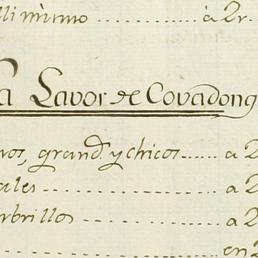 mismo ...... à 2r.
a Lavor de Covadong
ros, grand.s y chicos ...... a 2
ales ............ a 2
rbrillos ............ a 2
............ en 2